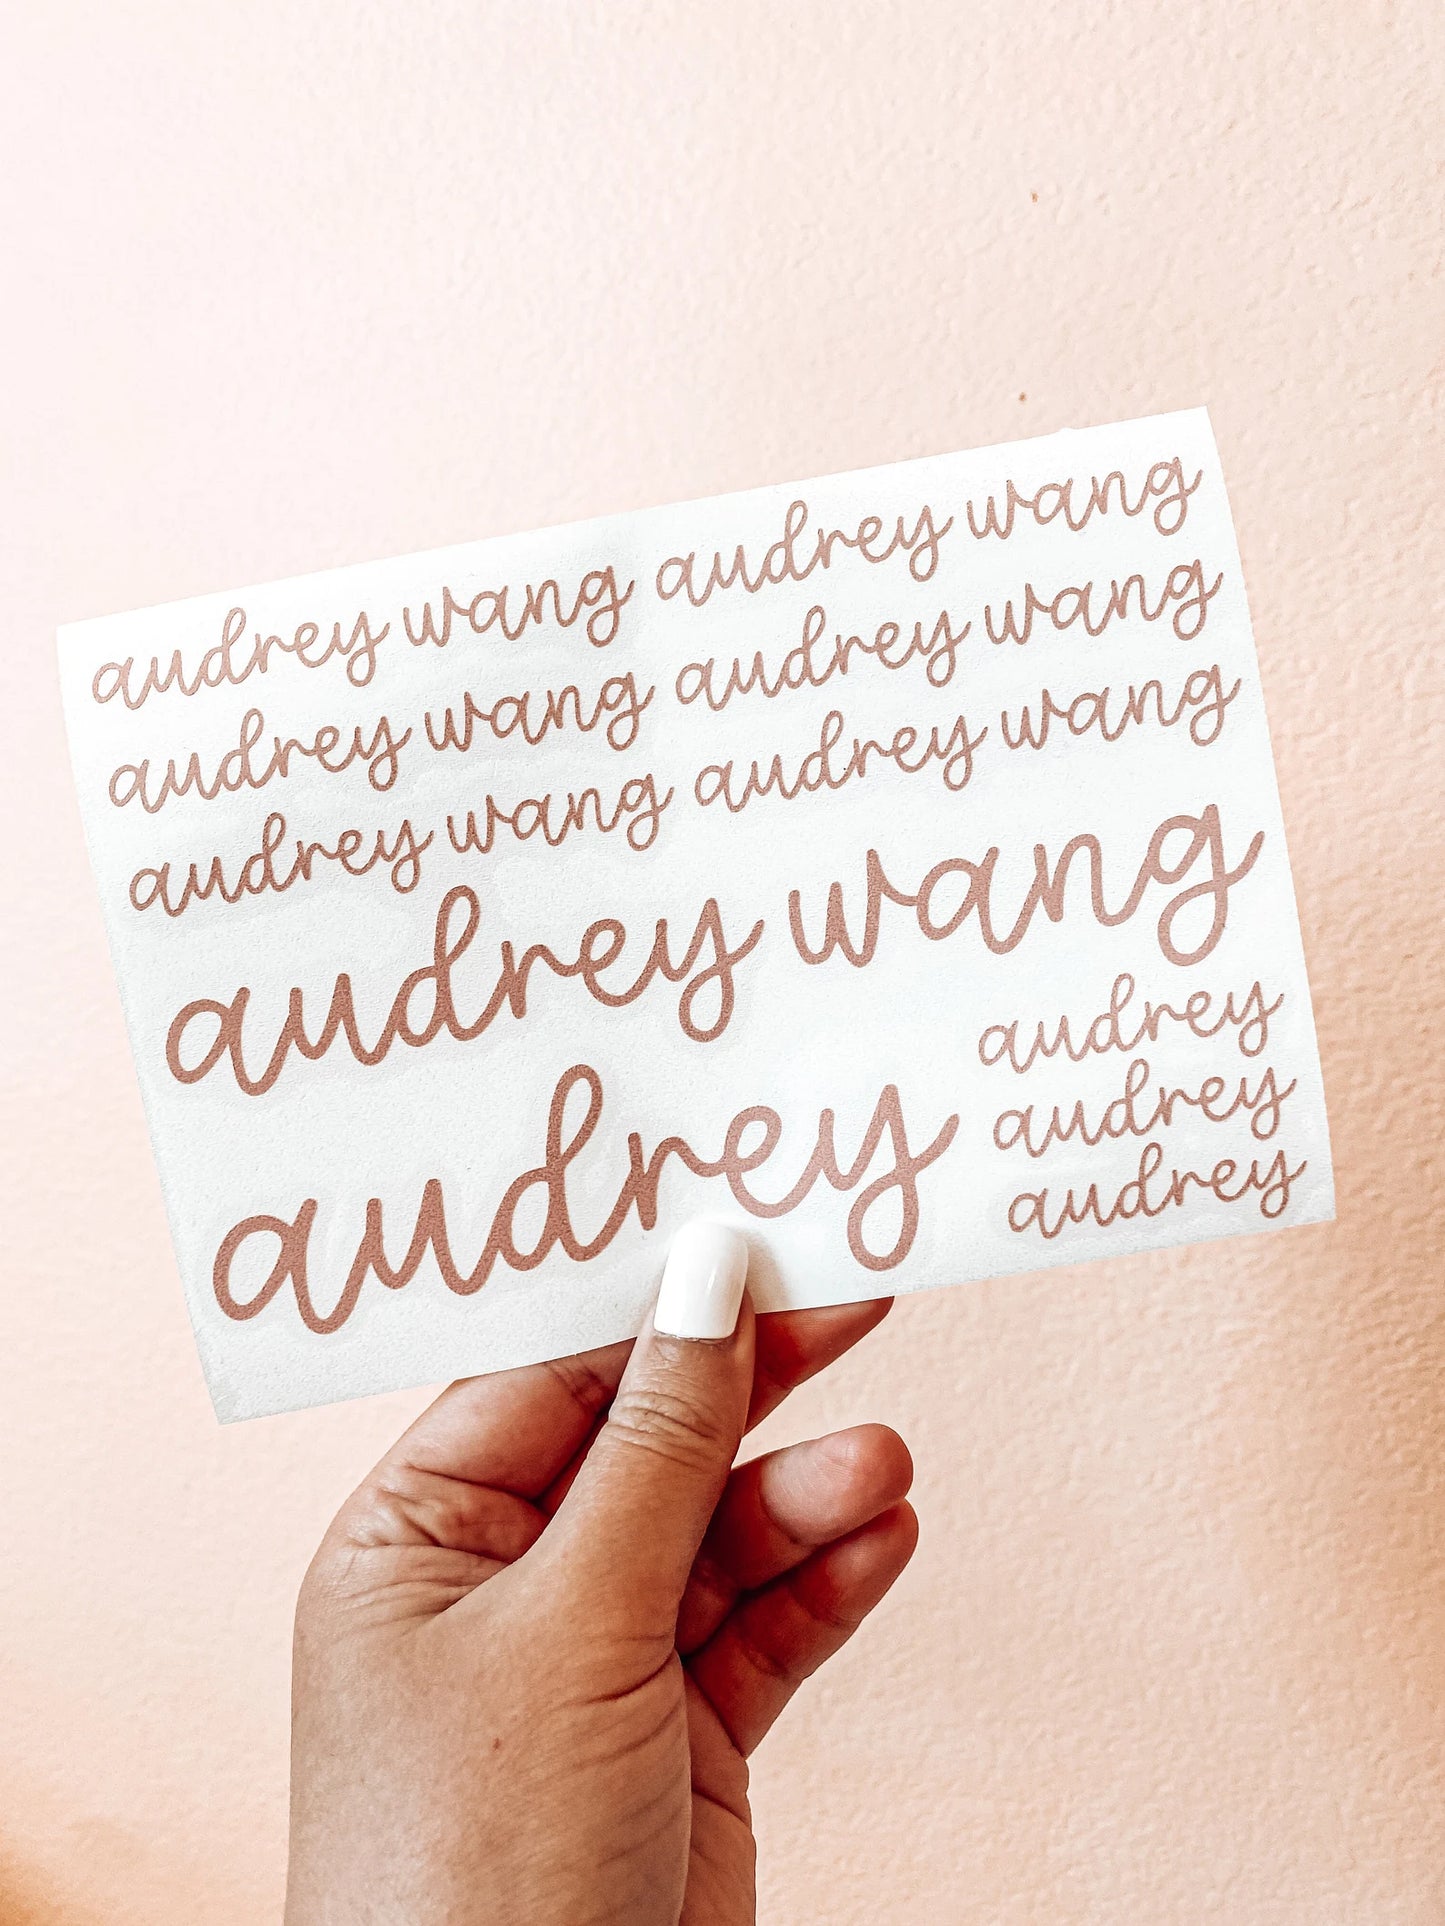 audrey wang audrey wang
audrey wang audrey wang
audrey wang audrey wang
audrey wang
audrey
audrey
audrey
audrey